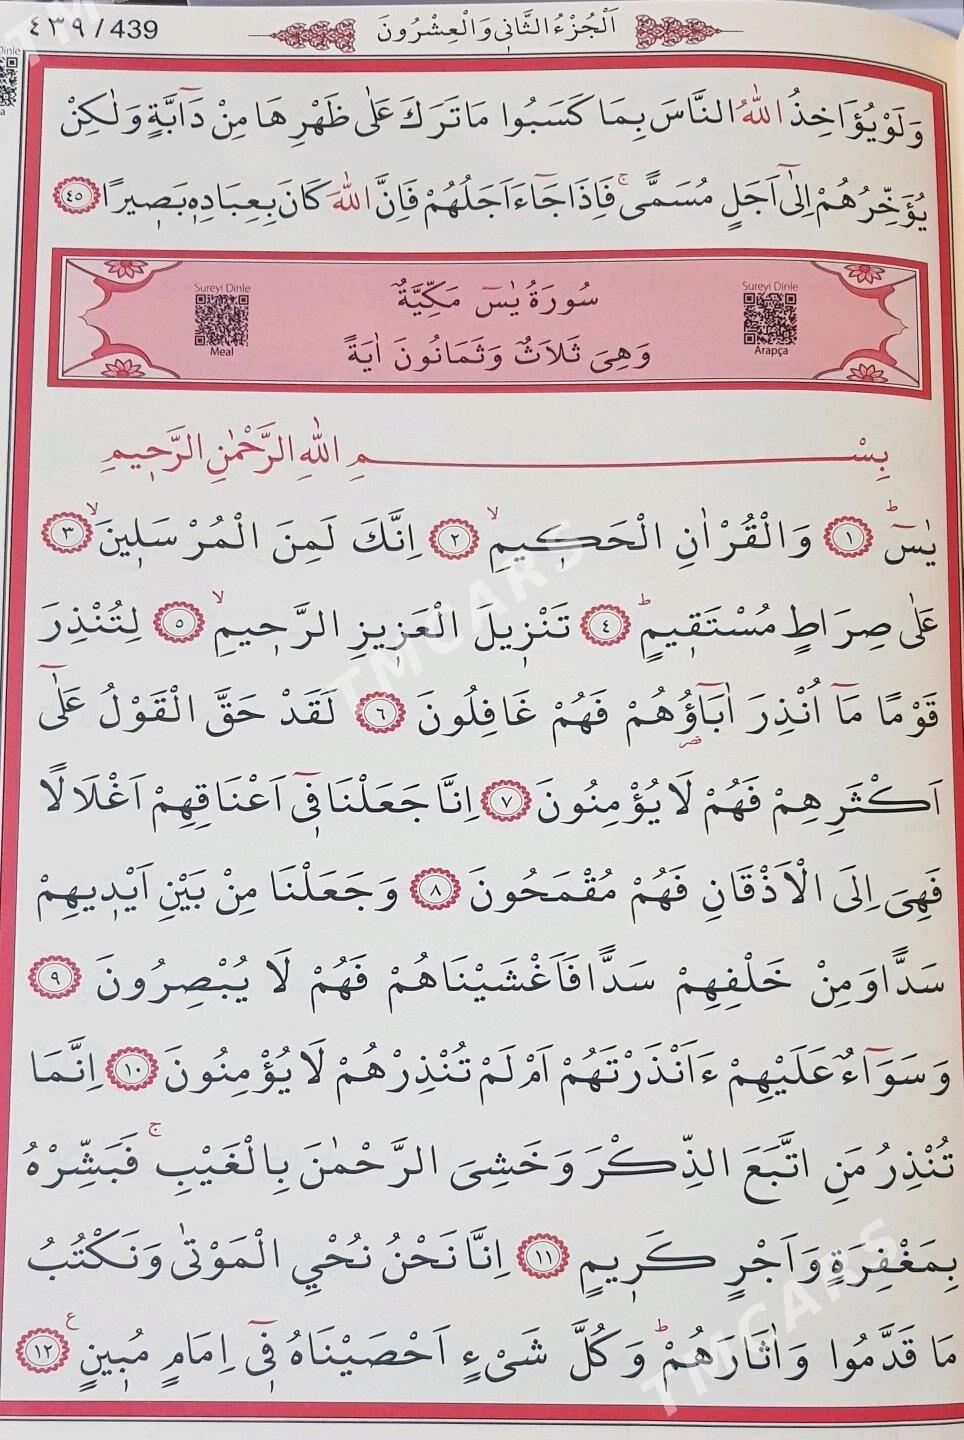 ٤٣٩ / 439
اَلْجُزْءُ الثَّانٖي وَالْعِشْرُونَ
وَلَوْ يُؤَاخِذُ اللّٰهُ النَّاسَ بِمَا كَسَبُوا مَا تَرَكَ عَلٰى ظَهْرِهَا مِنْ دَٓابَّةٍ وَلٰكِنْ
يُؤَخِّرُهُمْ اِلٰٓى اَجَلٍ مُسَمًّىۚ فَاِذَا جَٓاءَ اَجَلُهُمْ فَاِنَّ اللّٰهَ كَانَ بِعِبَادِهٖ بَصٖيرًا ٤٥
Sureyi Dinle
Meal
سُورَةُ يٰسٓ مَكِّيَّةٌ
وَهِيَ ثَلَاثٌ وَثَمَانُونَ اٰيَةً
Sureyi Dinle
Arapça
بِسْــــــــــــــــــــمِ اللّٰهِ الرَّحْمٰنِ الرَّحٖيمِ
يٰسٓۜ ١ وَالْقُرْاٰنِ الْحَكٖيمِۙ ٢ اِنَّكَ لَمِنَ الْمُرْسَلٖينَۙ ٣
عَلٰى صِرَاطٍ مُسْتَقٖيمٍۜ ٤ تَنْزٖيلَ الْعَزٖيزِ الرَّحٖيمِۙ ٥ لِتُنْذِرَ
قَوْمًا مَٓا اُنْذِرَ اٰبَٓاؤُ۬هُمْ فَهُمْ غَافِلُونَ ٦ لَقَدْ حَقَّ الْقَوْلُ عَلٰٓى
اَكْثَرِهِمْ فَهُمْ لَا يُؤْمِنُونَ ٧ اِنَّا جَعَلْنَا فٖٓي اَعْنَاقِهِمْ اَغْلَالًا
فَهِيَ اِلَى الْاَذْقَانِ فَهُمْ مُقْمَحُونَ ٨ وَجَعَلْنَا مِنْ بَيْنِ اَيْدٖيهِمْ
سَدًّا وَمِنْ خَلْفِهِمْ سَدًّا فَاَغْشَيْنَاهُمْ فَهُمْ لَا يُبْصِرُونَ ٩
وَسَوَٓاءٌ عَلَيْهِمْ ءَاَنْذَرْتَهُمْ اَمْ لَمْ تُنْذِرْهُمْ لَا يُؤْمِنُونَ ١٠ اِنَّمَا
تُنْذِرُ مَنِ اتَّبَعَ الذِّكْرَ وَخَشِيَ الرَّحْمٰنَ بِالْغَيْبِۚ فَبَشِّرْهُ
بِمَغْفِرَةٍ وَاَجْرٍ كَرٖيمٍ ١١ اِنَّا نَحْنُ نُحْيِ الْمَوْتٰى وَنَكْتُبُ
مَا قَدَّمُوا وَاٰثَارَهُمْۜ وَكُلَّ شَيْءٍ اَحْصَيْنَاهُ فٖٓي اِمَامٍ مُبٖينٍ ع ١٢
TMCARS
TMCARS